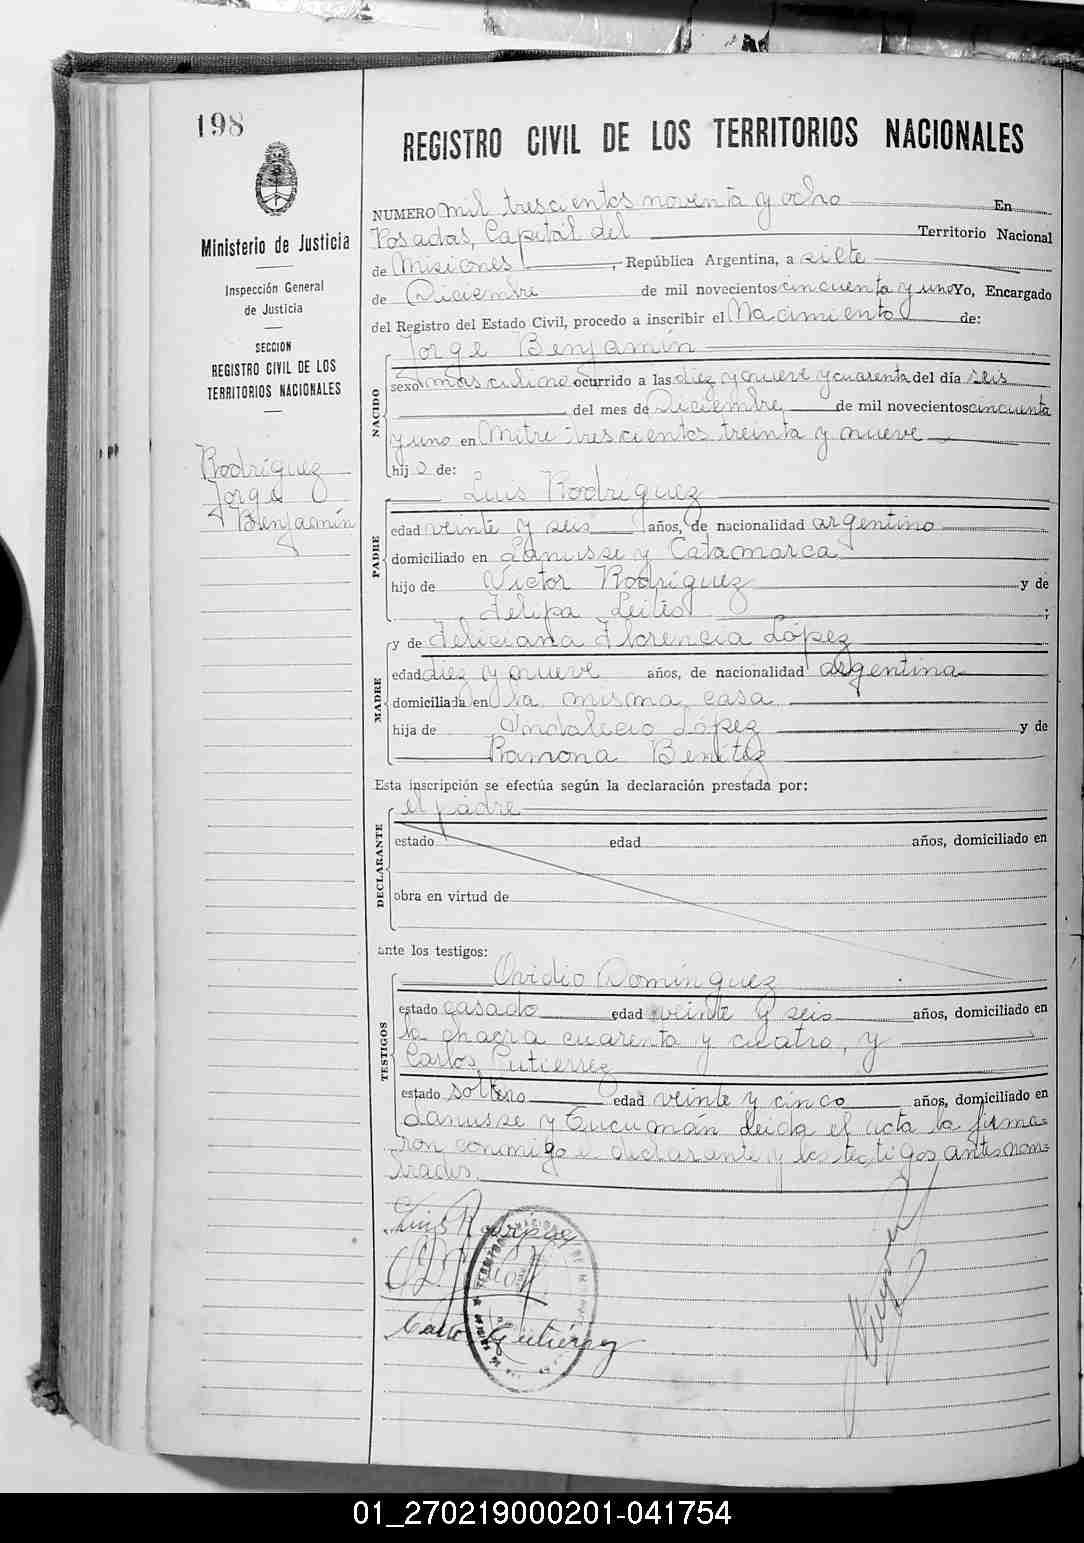 198
Ministerio de Justicia
Inspección General
de Justicia
SECCION
REGISTRO CIVIL DE LOS
TERRITORIOS NACIONALES
Rodríguez
Jorge
Benjamín
REGISTRO CIVIL DE LOS TERRITORIOS NACIONALES
NUMERO mil trescientos noventa y ocho En
Posadas, Capital del Territorio Nacional
de Misiones, República Argentina, a siete
de Diciembre de mil novecientos cincuenta y uno Yo, Encargado
del Registro del Estado Civil, procedo a inscribir el Nacimiento de:
NACIDO
Jorge Benjamín
sexo masculino ocurrido a las diez y nueve y cuarenta del día seis
del mes de Diciembre de mil novecientos cincuenta
y uno en Mitre trescientos treinta y nueve
hijo de:
PADRE
Luis Rodríguez
edad veinte y seis años, de nacionalidad argentino
domiciliado en Lanusse y Catamarca
hijo de Victor Rodríguez y de
Felipa Leites;
MADRE
y de Feliciana Florencia López
edad diez y nueve años, de nacionalidad argentina
domiciliada en la misma casa
hija de Indalecio López y de
Ramona Benítez
Esta inscripción se efectúa según la declaración prestada por:
DECLARANTE
el padre
estado edad años, domiciliado en
obra en virtud de
ante los testigos:
TESTIGOS
Ovidio Domínguez
estado casado edad veinte y seis años, domiciliado en
la chacra cuarenta y cuatro, y
Carlos Gutierrez
estado soltero edad veinte y cinco años, domiciliado en
Lanusse y Tucumán leida el acta la firma-
ron conmigo el declarante y los testigos antes nom-
brados.
Luis Rodríguez
Carlos Gutiérrez
01_270219000201-041754